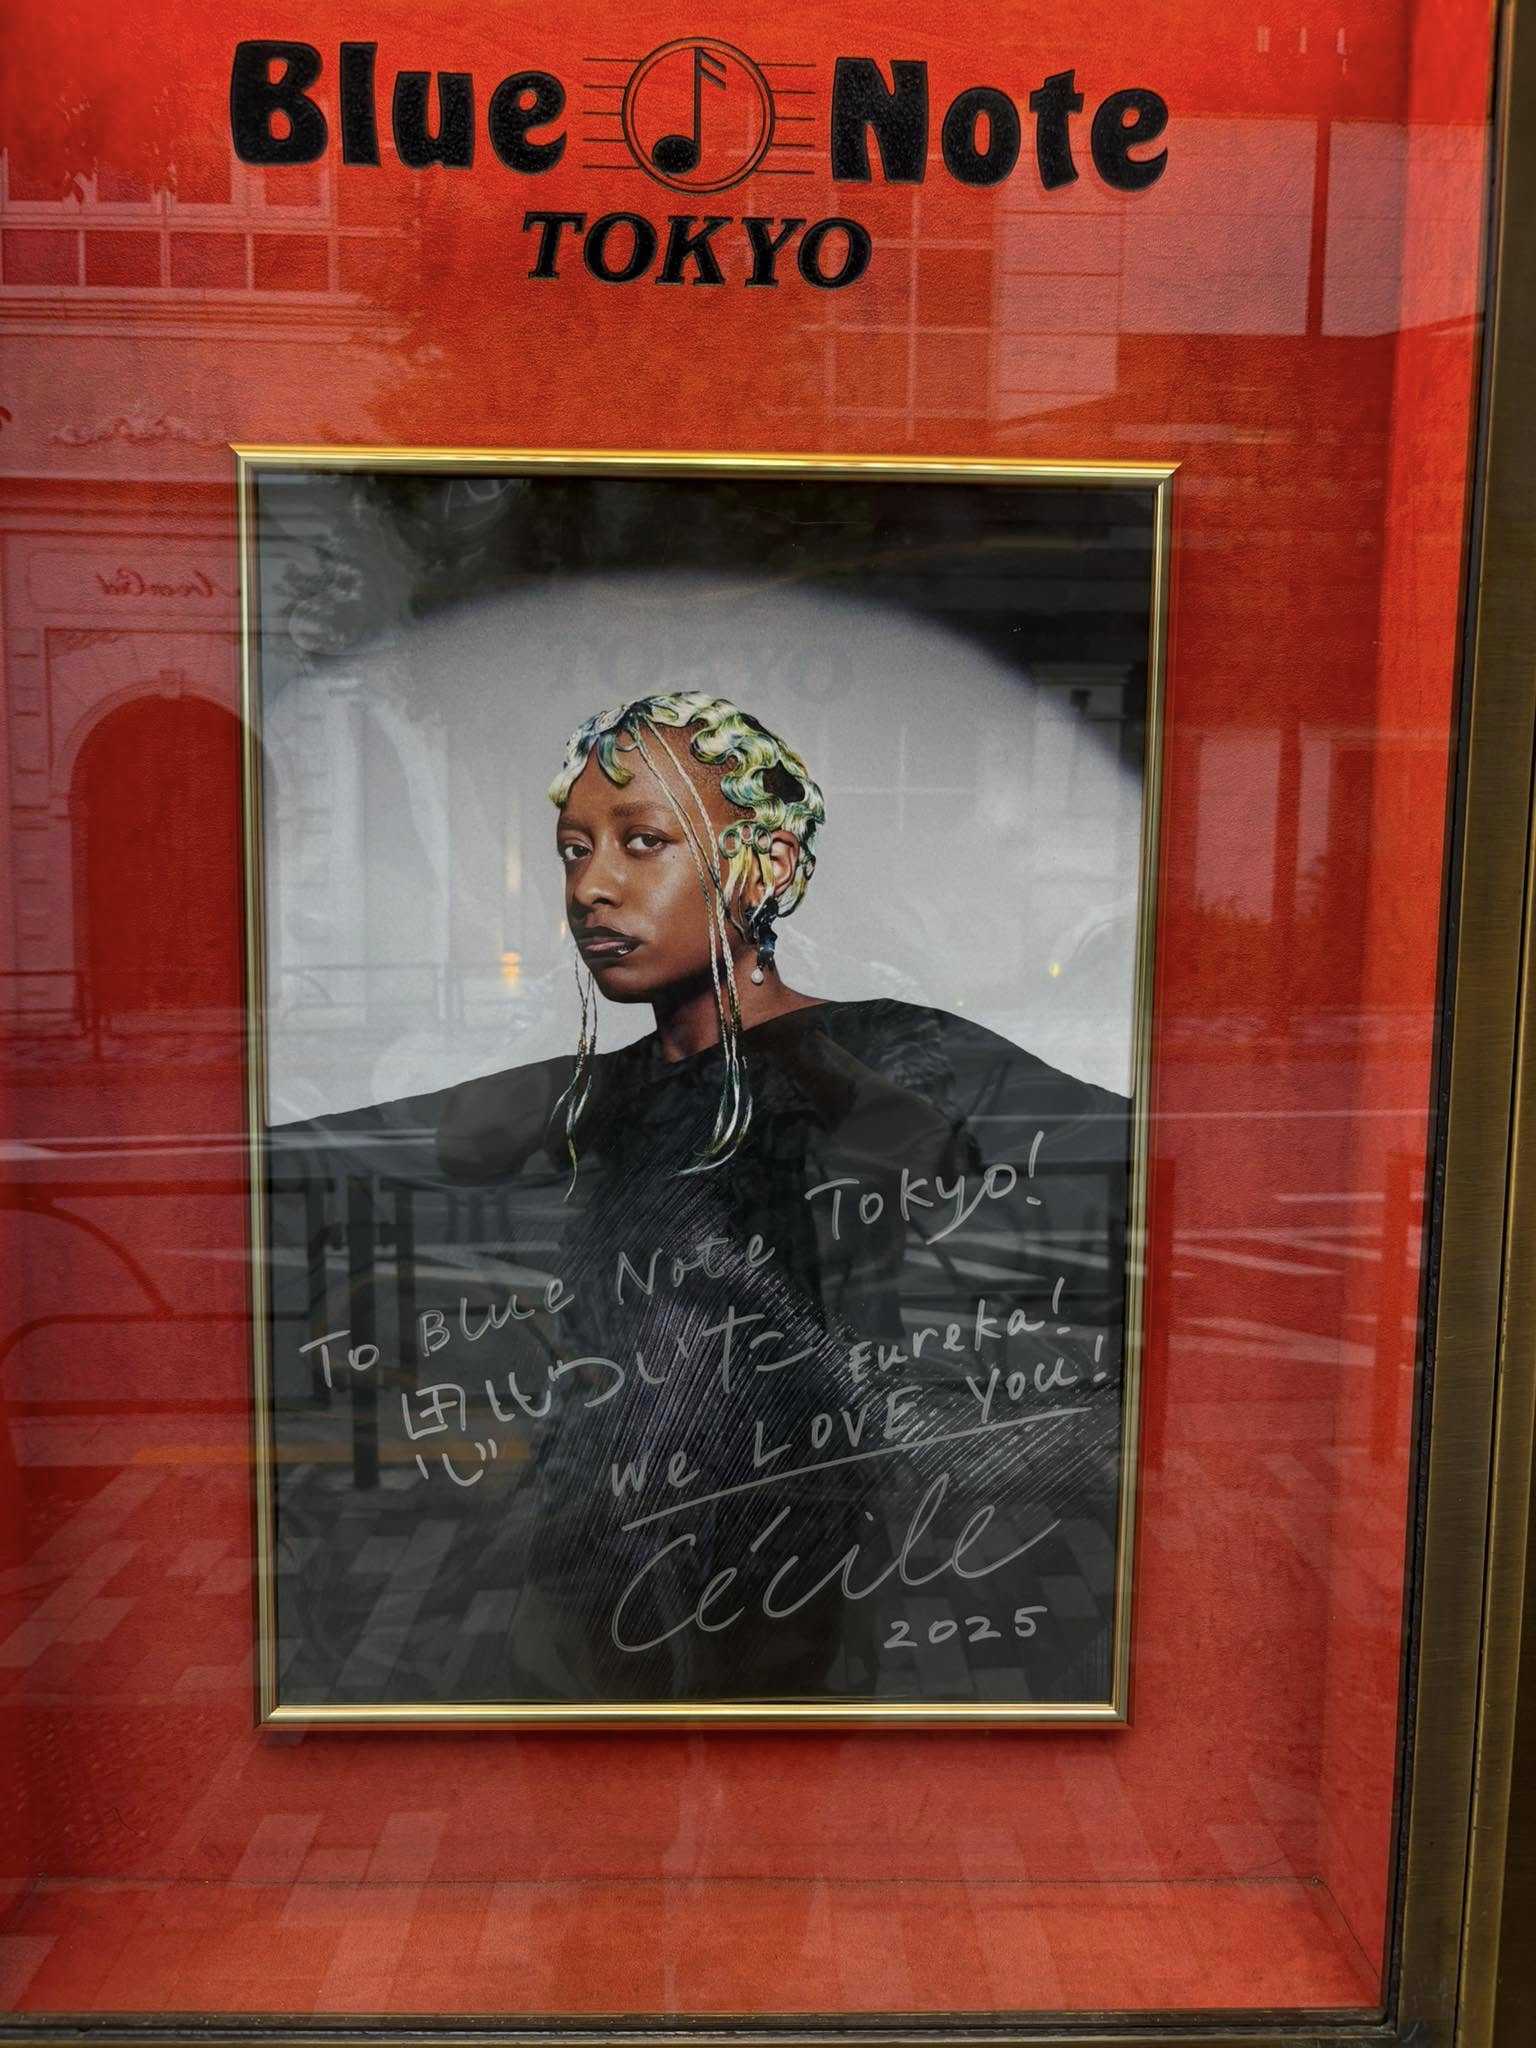 Blue Note
TOKYO
To Blue Note Tokyo!
思いついた Eureka!
We LOVE You!
Cécile
2025